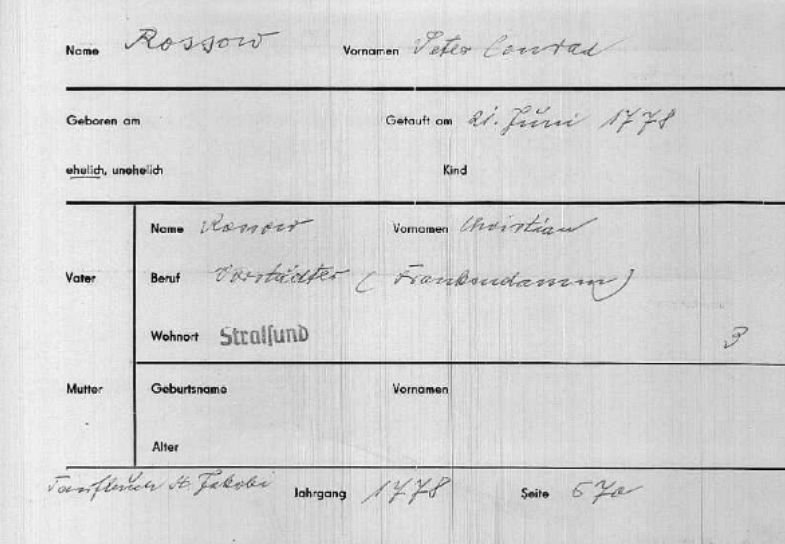 Name Rossow Vornamen Peter Conrad
Geboren am Getauft am 21. Juni 1778
ehelich, unehelich Kind
Name Rossow Vornamen Christian
Vater Beruf Vorstädter (Frankendamm)
Wohnort Stralsund 3
Mutter Geburtsname Vornamen
Alter
Taufbuch St. Jakobi Jahrgang 1778 Seite 670